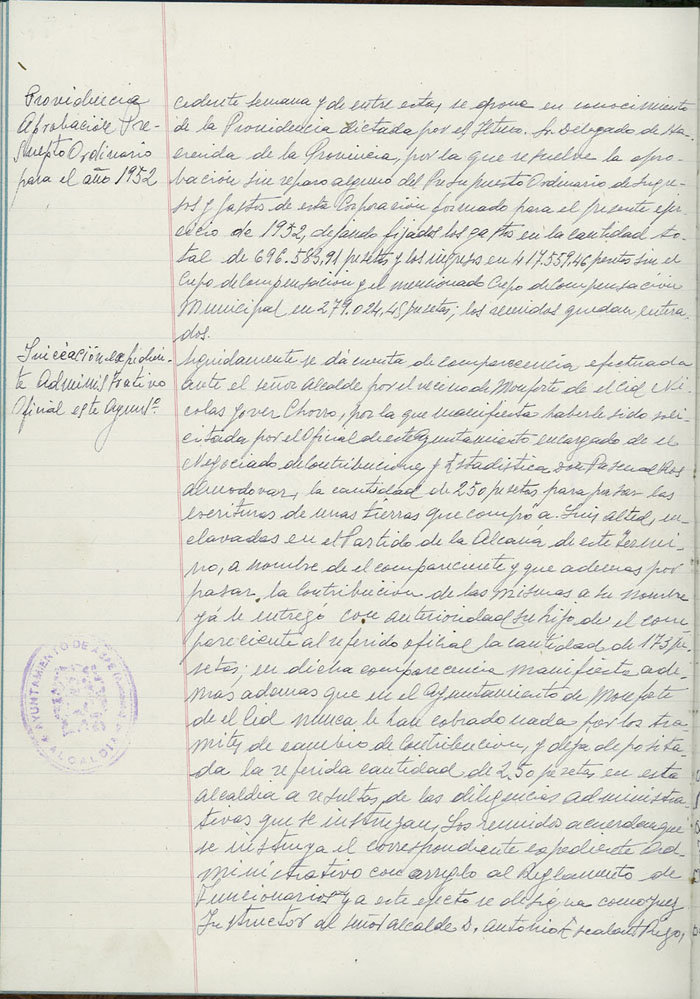 Providencia
Aprobación Pre-
supto Ordinario
para el año 1952
cedente semana y de entre estas, se opone en conocimiento
de la Providencia dictada por el Iltmo. Sr. Delegado de Ha-
cienda de la Provincia, por la que resuelve la apro-
bación sin reparo alguno del Presupuesto Ordinario de Ingre-
sos y Gastos de esta Corporación formado para el presente ejer-
cicio de 1952, dejando fijados los gastos en la cantidad to-
tal de 696.583,91 pesetas y los ingresos en 417.559,46 pesetas sin el
Cupo de Compensación y el mencionado Cupo de Compensación
Municipal en 279.024,45 pesetas; los reunidos quedan entera-
dos.
Iniciación expedien-
te Administrativo
Oficial este Ayuntº.
Seguidamente se da cuenta de comparecencia efectuada
ante el señor Alcalde por el vecino de Monforte del Cid Ni-
colas Jover Chorro, por la que manifiesta haberle sido soli-
citada por el Oficial de este Ayuntamiento encargado de el
Negociado de Contribuciones y Estadistica, Don Pascual
Almodovar, la cantidad de 250 pesetas para pasar las
escrituras de unas tierras que compró a Luis Alted, en-
clavadas en el Partido de la Alcaná de este Térmi-
no, a nombre de el compareciente y que ademas por
pasar la Contribucion de las mismas a su nombre
ya le entregó con anterioridad su hijo de el com-
pareciente al referido oficial la cantidad de 173 pe-
setas; en dicha comparecencia manifiesta ade-
mas ademas que en el Ayuntamiento de Monforte
de el Cid nunca le han cobrado nada por los tra-
mites de cambio de Contribucion, y deja deposita-
da la referida cantidad de 250 pesetas en esta
Alcaldia a resultas de las diligencias administra-
tivas que se instruyan, Los reunidos acuerdan que
se instruya el correspondiente expediente Ad-
ministrativo con arreglo al Reglamento de
Funcionarios y a este efecto se designa como Juez
Instructor al señor Alcalde D. Antonio Escalant
AYUNTAMIENTO DE ASPE
ALCALDIA